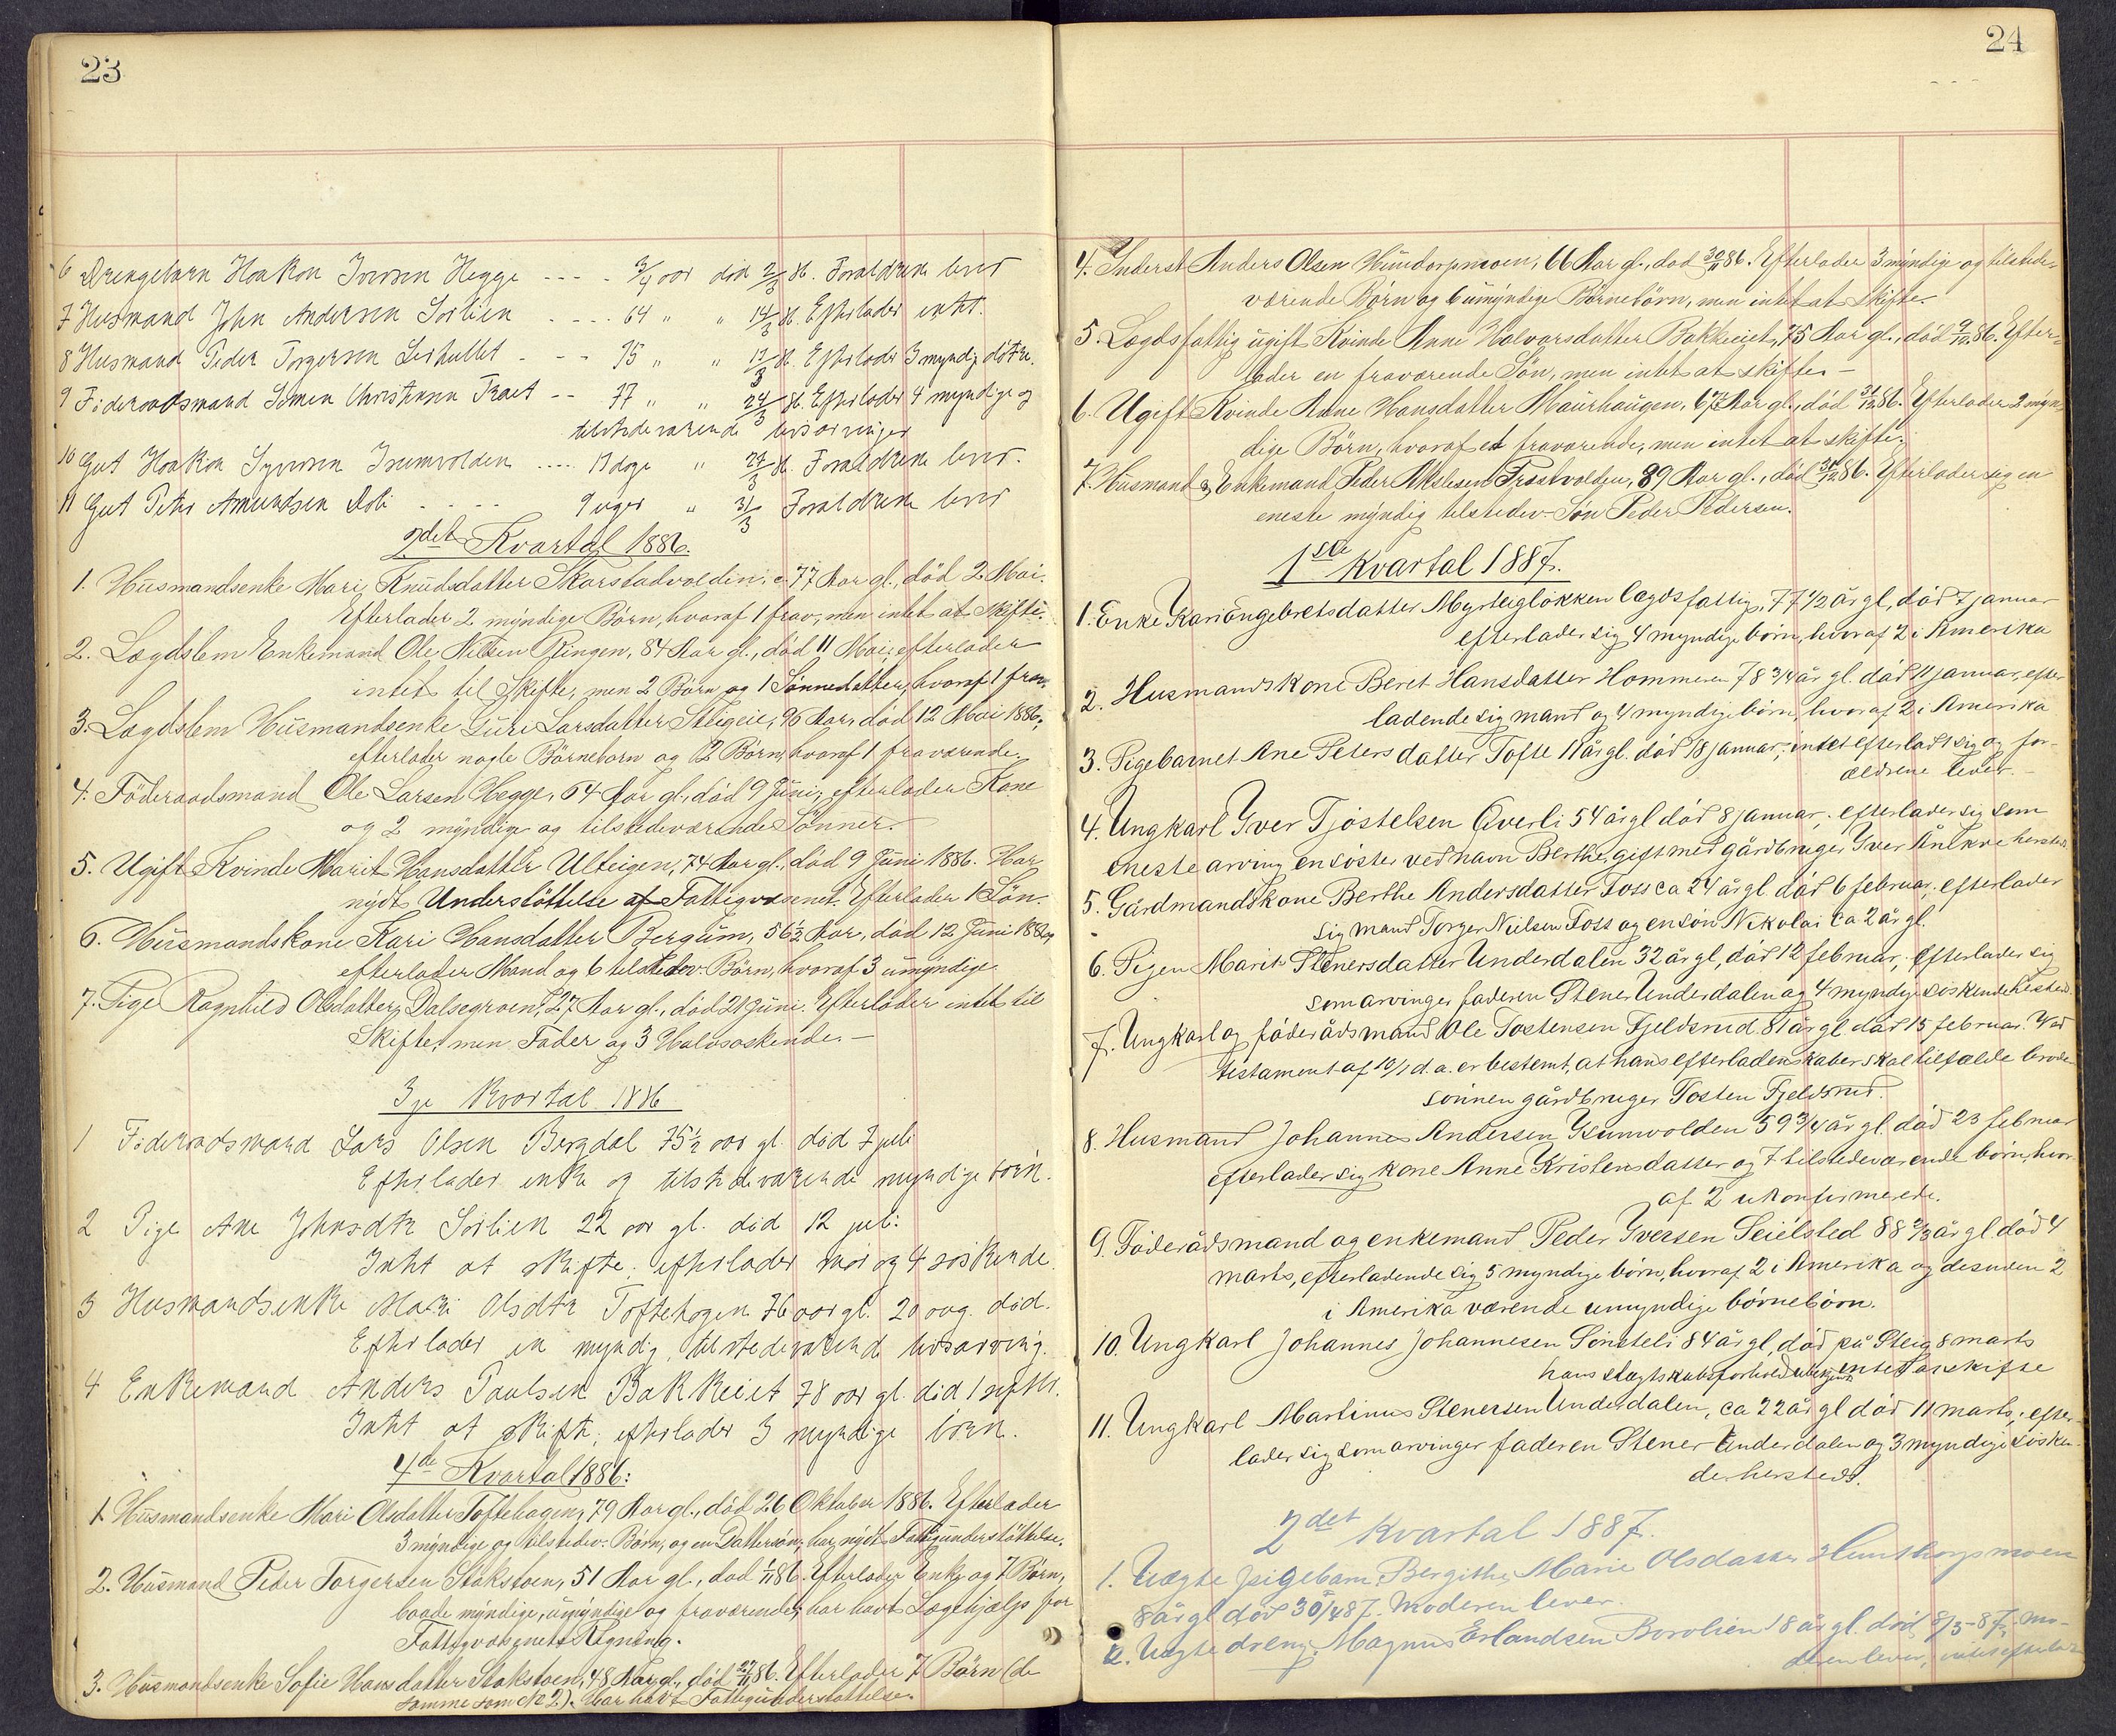 23
6 Drengebarn Haakon Iversen Hegge - - - - 3/4 aar död 2/3 86. Forældrene lever
7 Husmand John Andersen Sörlien - - - - 64 " " 14/3 86. Efterlader intet.
8 Husmand Peder Torgersen - - - 75 " " 17/3 86. Efterlader 3 myndig døtre.
9 Föderaadsmand Simen Christensen - - 77 " " 24/3 86. Efterlader 4 myndige og
tilstedeværende livsarvinger
10 Gut Haakon Syversen .... 17 dage " 27/3 86. Forældrene lever.
11 Gut Peter Amundsen - - - - 9 uger " 31/3 Forældrene lever
2det Kvartal 1886.
1. Husmandsenke Mari Knudsdatter Skarstadvolden, c. 77 Aar gl., död 2. Mai.
Efterlader 2 myndige Børn, hvoraf 1 frav., men intet at Skifte.
2. Lægdslem Enkemand Ole Nilsen Ringen, 84 Aar gl., död 11 Mai, efterlader
intet til Skifte, men 2 Børn og 1 Sønnedatter, hvoraf 1 frav.
3. Lægdslem Husmandsenke Guri Larsdatter Steigeie, 96 Aar, död 12 Mai 1886;
efterlader nogle Börnebarn og 2 Børn, hvoraf 1 fraværende.
4. Föderaadsmand Ole Larsen Hegge, 64 Aar gl., död 9 Juni, efterlader Kone
og 2 myndige og tilstedeværende Sönner.
5. Ugift Kvinde Marit Hansdatter Ulteigen, 74 Aar gl., död 9 Juni 1886. Har
nydt Understöttelse af Fattigvæsenet. Efterlader 1 Sön.
6. Husmandskone Kari Hansdatter Bergum, 56½ Aar, död 12 Juni 1886,
efterlader Mand og 6 tilstedev. Börn, hvoraf 3 umyndige.
7. Pige Ragnhild Olsdatter Dalsegroen, 27 Aar gl., död 21 Juni. Efterlader intet til
Skifte, men Fader og 3 Halvsøskende. —
3je Kvartal 1886
1 Föderaadsmand Lars Olsen Bergdal 75½ aar gl. död 7 juli
Efterlader enke og tilstedeværende myndige börn.
2 Pige Ane Johnsdtr Sörlien 22 aar gl. död 12 juli
Intet at skifte; efterlader mor og 4 söskende.
3 Husmandsenke Mari Olsdtr Toftehagen 76 aar gl. 20 aug. död.
Efterlader en myndig, tilstedeværende livsarving.
4 Enkemand Anders Paulsen Bakkeiet 78 aar gl. död 1 septbr.
Intet at skifte; efterlader 3 myndige börn.
4de Kvartal 1886:
1 Husmandsenke Mari Olsdatter Toftehagen, 79 Aar gl., död 26 Oktober 1886. Efterlader
3 myndige og tilstedev. Børn, og en Dattersøn, har nydt Fattigunderstöttelse.
2. Husmand Peder Torgersen Stakstoen, 51 Aar gl., död 1/11 86. Efterlader Enke og 7 Börn,
baade myndige, umyndige og fraværende; har havt Lægehjælp for
Fattigvæsenets Regning.
3. Husmandsenke Sofie Hansdatter Stakstoen, 48 Aar gl., död 27/11 86. Efterlader 7 Börn (de
samme som No 2). Har havt Fattigunderstöttelse.
24
4. Inderst Anders Olsen Hundorpmoen, 66 Aar gl., död 30/11 86. Efterlader 3 myndige og tilstede-
værende Börn og 6 umyndige Börnebörn, men intet at Skifte.
5. Lægdsfattig ugift Kvinde Anne Halvorsdatter Bakkeiet, 75 Aar gl., död 9/12 86. Efter-
lader en fraværende Sön, men intet at skifte. —
6. Ugift Kvinde Anne Hansdatter Maurhaugen, 67 Aar gl., död 31/12 86. Efterlader 2 myn-
dige Börn, hvoraf et fraværende, men intet at skifte.
7. Husmand & Enkemand Peder Akslesen Trostvolden, 89 Aar gl., död 31/12 86. Efterlader sig en
eneste myndig tilstedev. Sön Peder Pedersen.
1ste Kvartal 1887.
1. Enke Kari Engebretsdatter Myrteigløkken lægdsfattig, 77½ år gl, död 7 januar
efterlader sig 4 myndige börn, hvoraf 2 i Amerika
2. Husmandskone Beret Hansdatter Hommeren 78 3/4 år gl. död 11 januar, efter
ladende sig mand og 4 myndige börn, hvoraf 2 i Amerika
3. Pigebarnet Ane Petersdatter Tofte 11 år gl. död 18 januar, intet efterladt sig og for-
ældrene lever. —
4. Ungkarl Iver Tjøstelsen Øverli 54 år gl död 8 januar, efterlader sig som
eneste arving en söster ved navn Berthe, gift med gårdbruger Iver herstd.
5. Gårdmandskone Berthe Andersdatter Foss ca 24 år gl. död 6 februar, efterlader
sig mand Torger Nielsen Foss og en sön Nikolai ca 2 år gl.
6. Pigen Marit Stenersdatter Underdalen 32 år gl, död 12 februar, efterlader sig
som arvinger faderen Stener Underdalen og 4 myndige söskende herstd.
7. Ungkarl og föderådsmand Ole Tostensen Fjeldsrud 81 år gl död 15 februar. Ved
testament af 10/1 d. a. er bestemt, at hans efterladenskaber skal tilfalde broder-
sönnen gårdbruger Tosten Fjeldsrud.
8. Husmand Johannes Andersen Isumvolden 59 3/4 år gl. död 23 februar
efterlader sig kone Anne Kristensdatter og 7 tilstedeværende börn, hvor-
af 2 ukonfirmerede.
9. Föderådsmand og enkemand Peder Iversen Seielsted 88 2/3 år gl död 4
marts, efterladende sig 5 myndige börn, hvoraf 2 i Amerika og desuden 2
i Amerika værende umyndige börnebörn.
10. Ungkarl Johannes Johannesen Sönsteli 84 år gl, död på Steig 8 marts
hans slægtskabsforhold ubekjendt intet at skifte
11. Ungkarl Martinus Stenersen Underdalen, ca 22 år gl död 11 marts; efter-
lader sig som arvinger faderen Stener Underdalen og 3 myndige sösken-
de hersteds.
2det Kvartal 1887.
1. Uægte pigebarn Bergithe Marie Olsdatter Hunthorpsmoen
8 år gl död 30/4 87. Moderen lever.
2. Uægte dreng Magnus Erlandsen Borolien 18 år gl. död 8/5-87, mo-
deren lever, intet efterladt